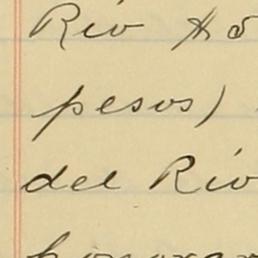 Río $5
pesos)
del Río